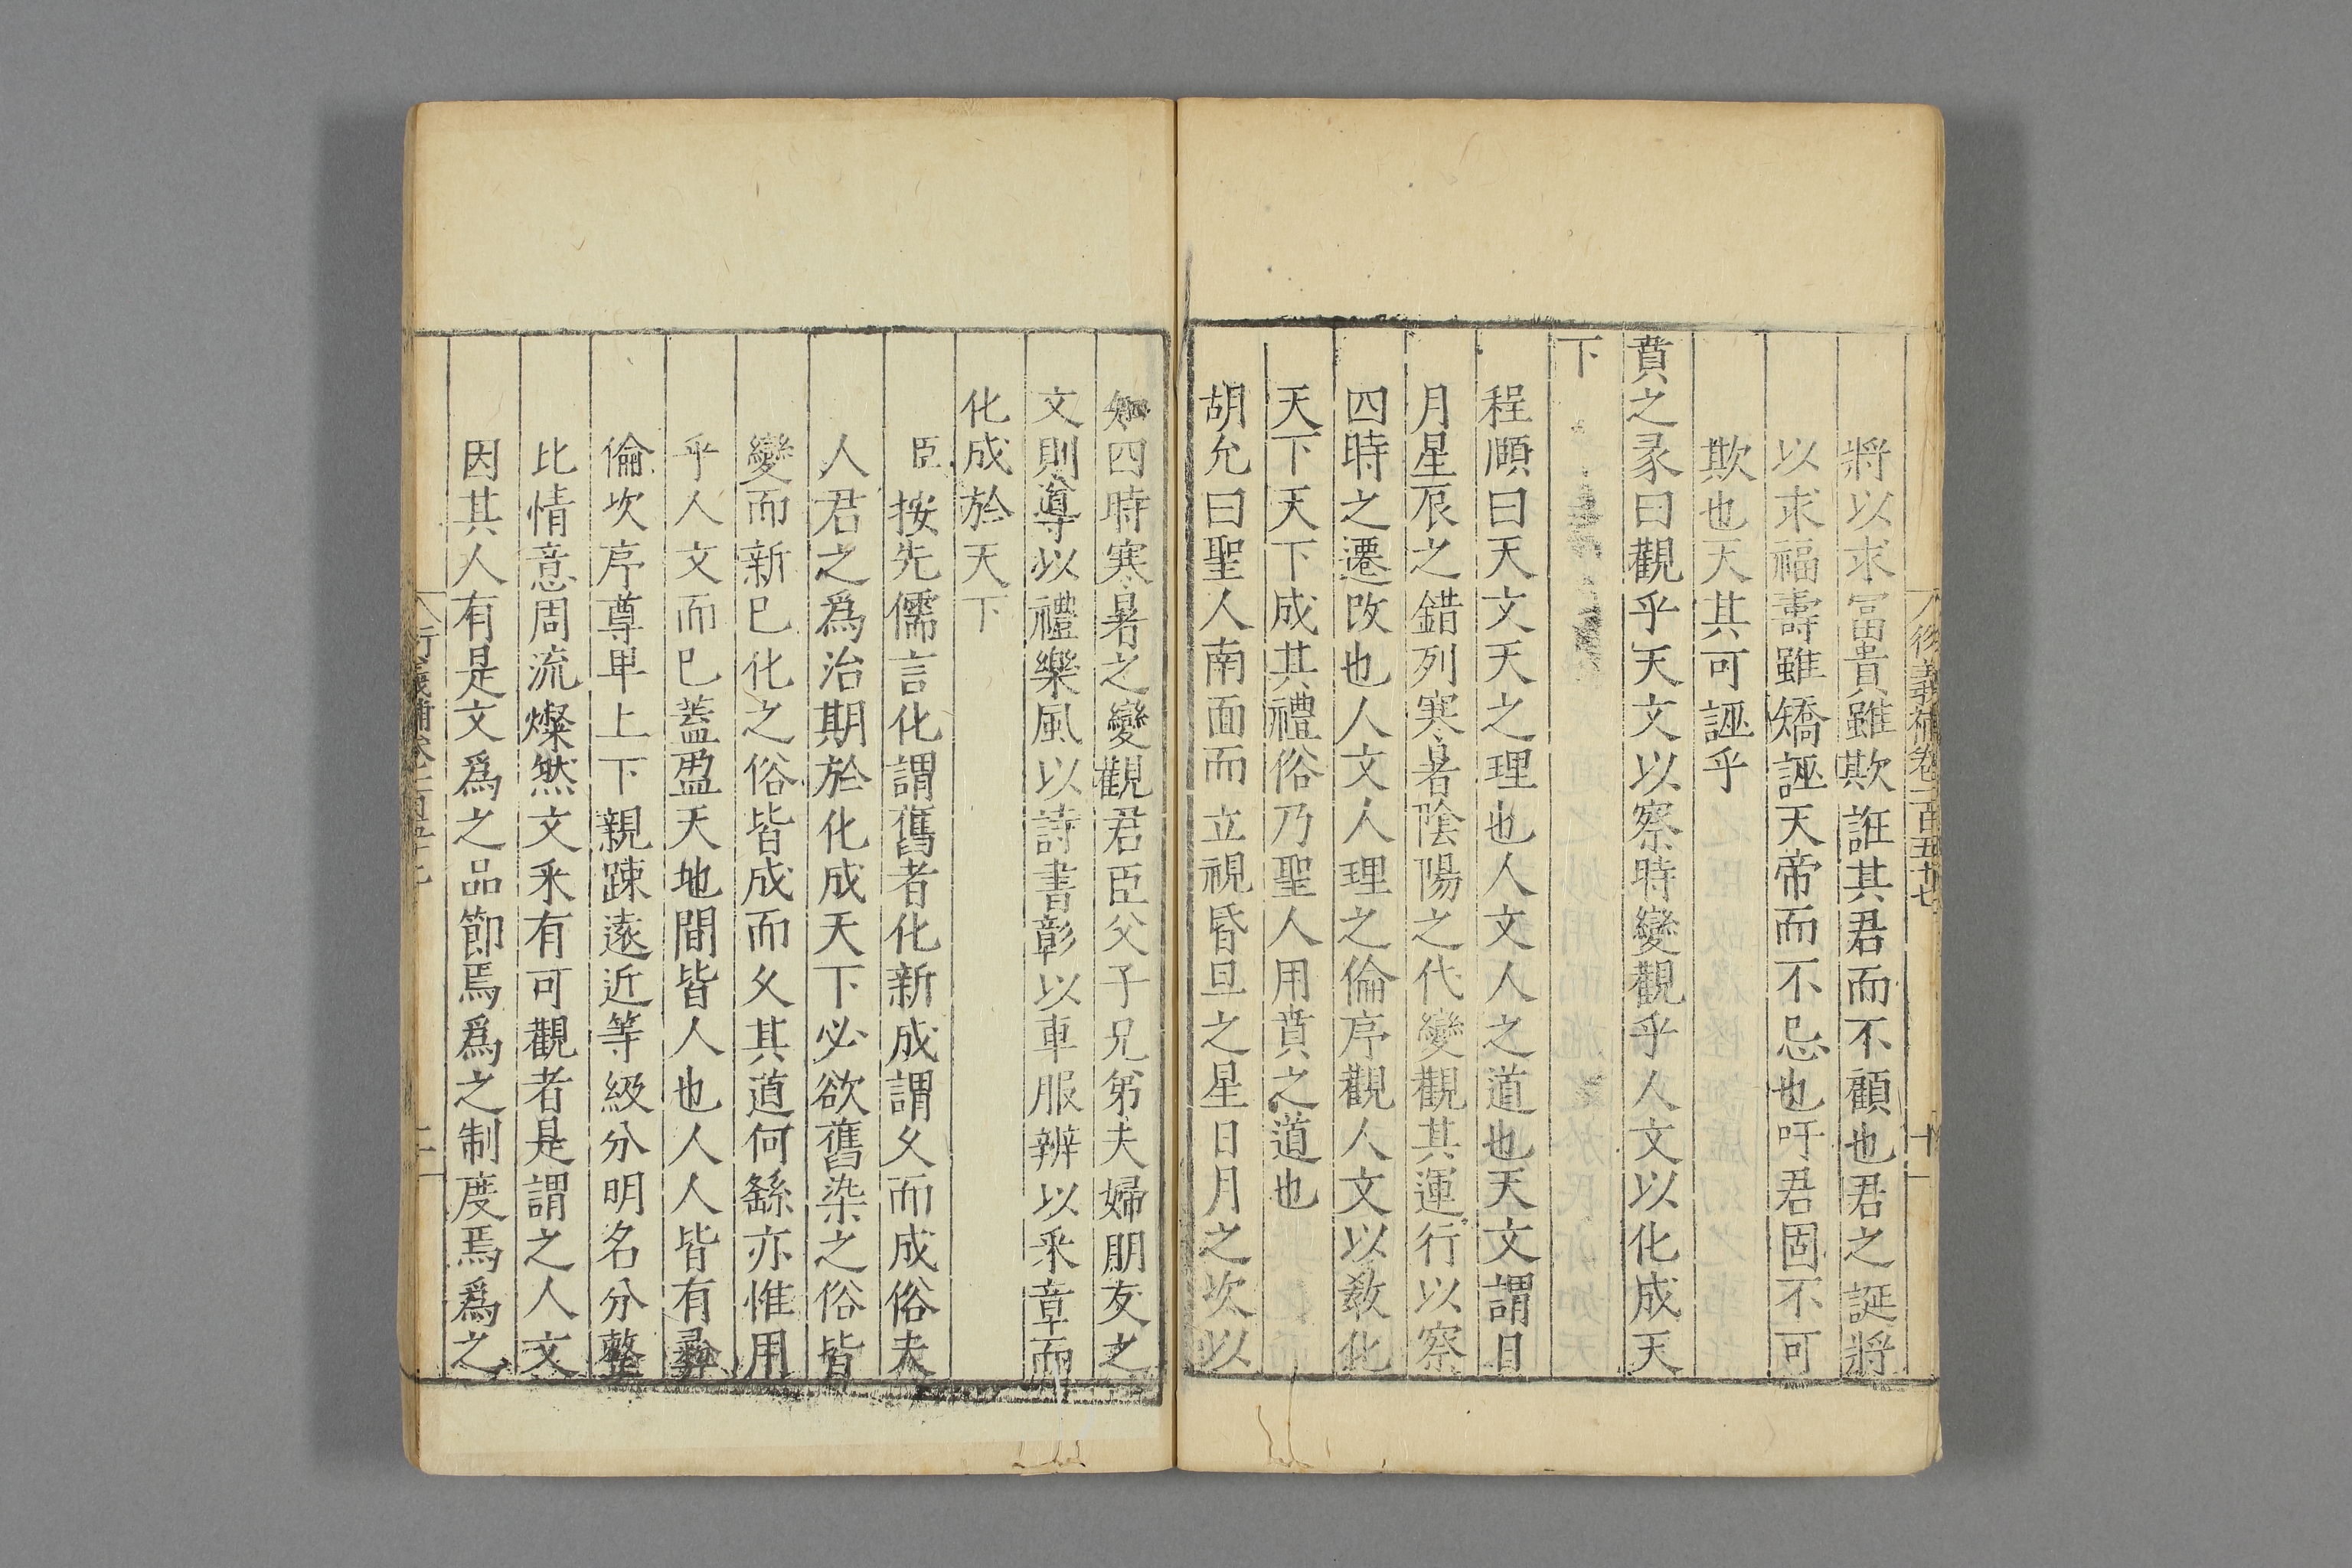 將以求富貴雖欺誑其君而不顧也君之誕將
以求福壽雖矯誣天帝而不忌也吁君固不可
欺也天其可誣乎
賁之彖曰觀乎天文以察時變觀乎人文以化成天
下
程頤曰天文天之理也人文人之道也天文謂日
月星辰之錯列寒暑陰陽之代變觀其運行以察
四時之遷改也人文人理之倫序觀人文以敎化
天下天下成其禮俗乃聖人用賁之道也
胡允曰聖人南面而立視昏旦之星日月之次以
知四時寒暑之變觀君臣父子兄弟夫婦朋友之
文則導以禮樂風以詩書彰以車服辨以采章而
化成於天下
臣按先儒言化謂舊者化新成謂久而成俗夫
人君之爲治期於化成天下必欲舊染之俗皆
變而新已化之俗皆成而久其道何繇亦惟用
乎人文而已蓋盈天地間皆人也人人皆有彞
倫次序尊卑上下親踈遠近等級分明名分整
比情意周流燦然文采有可觀者是謂之人文
因其人有是文爲之品節焉爲之制度焉爲之